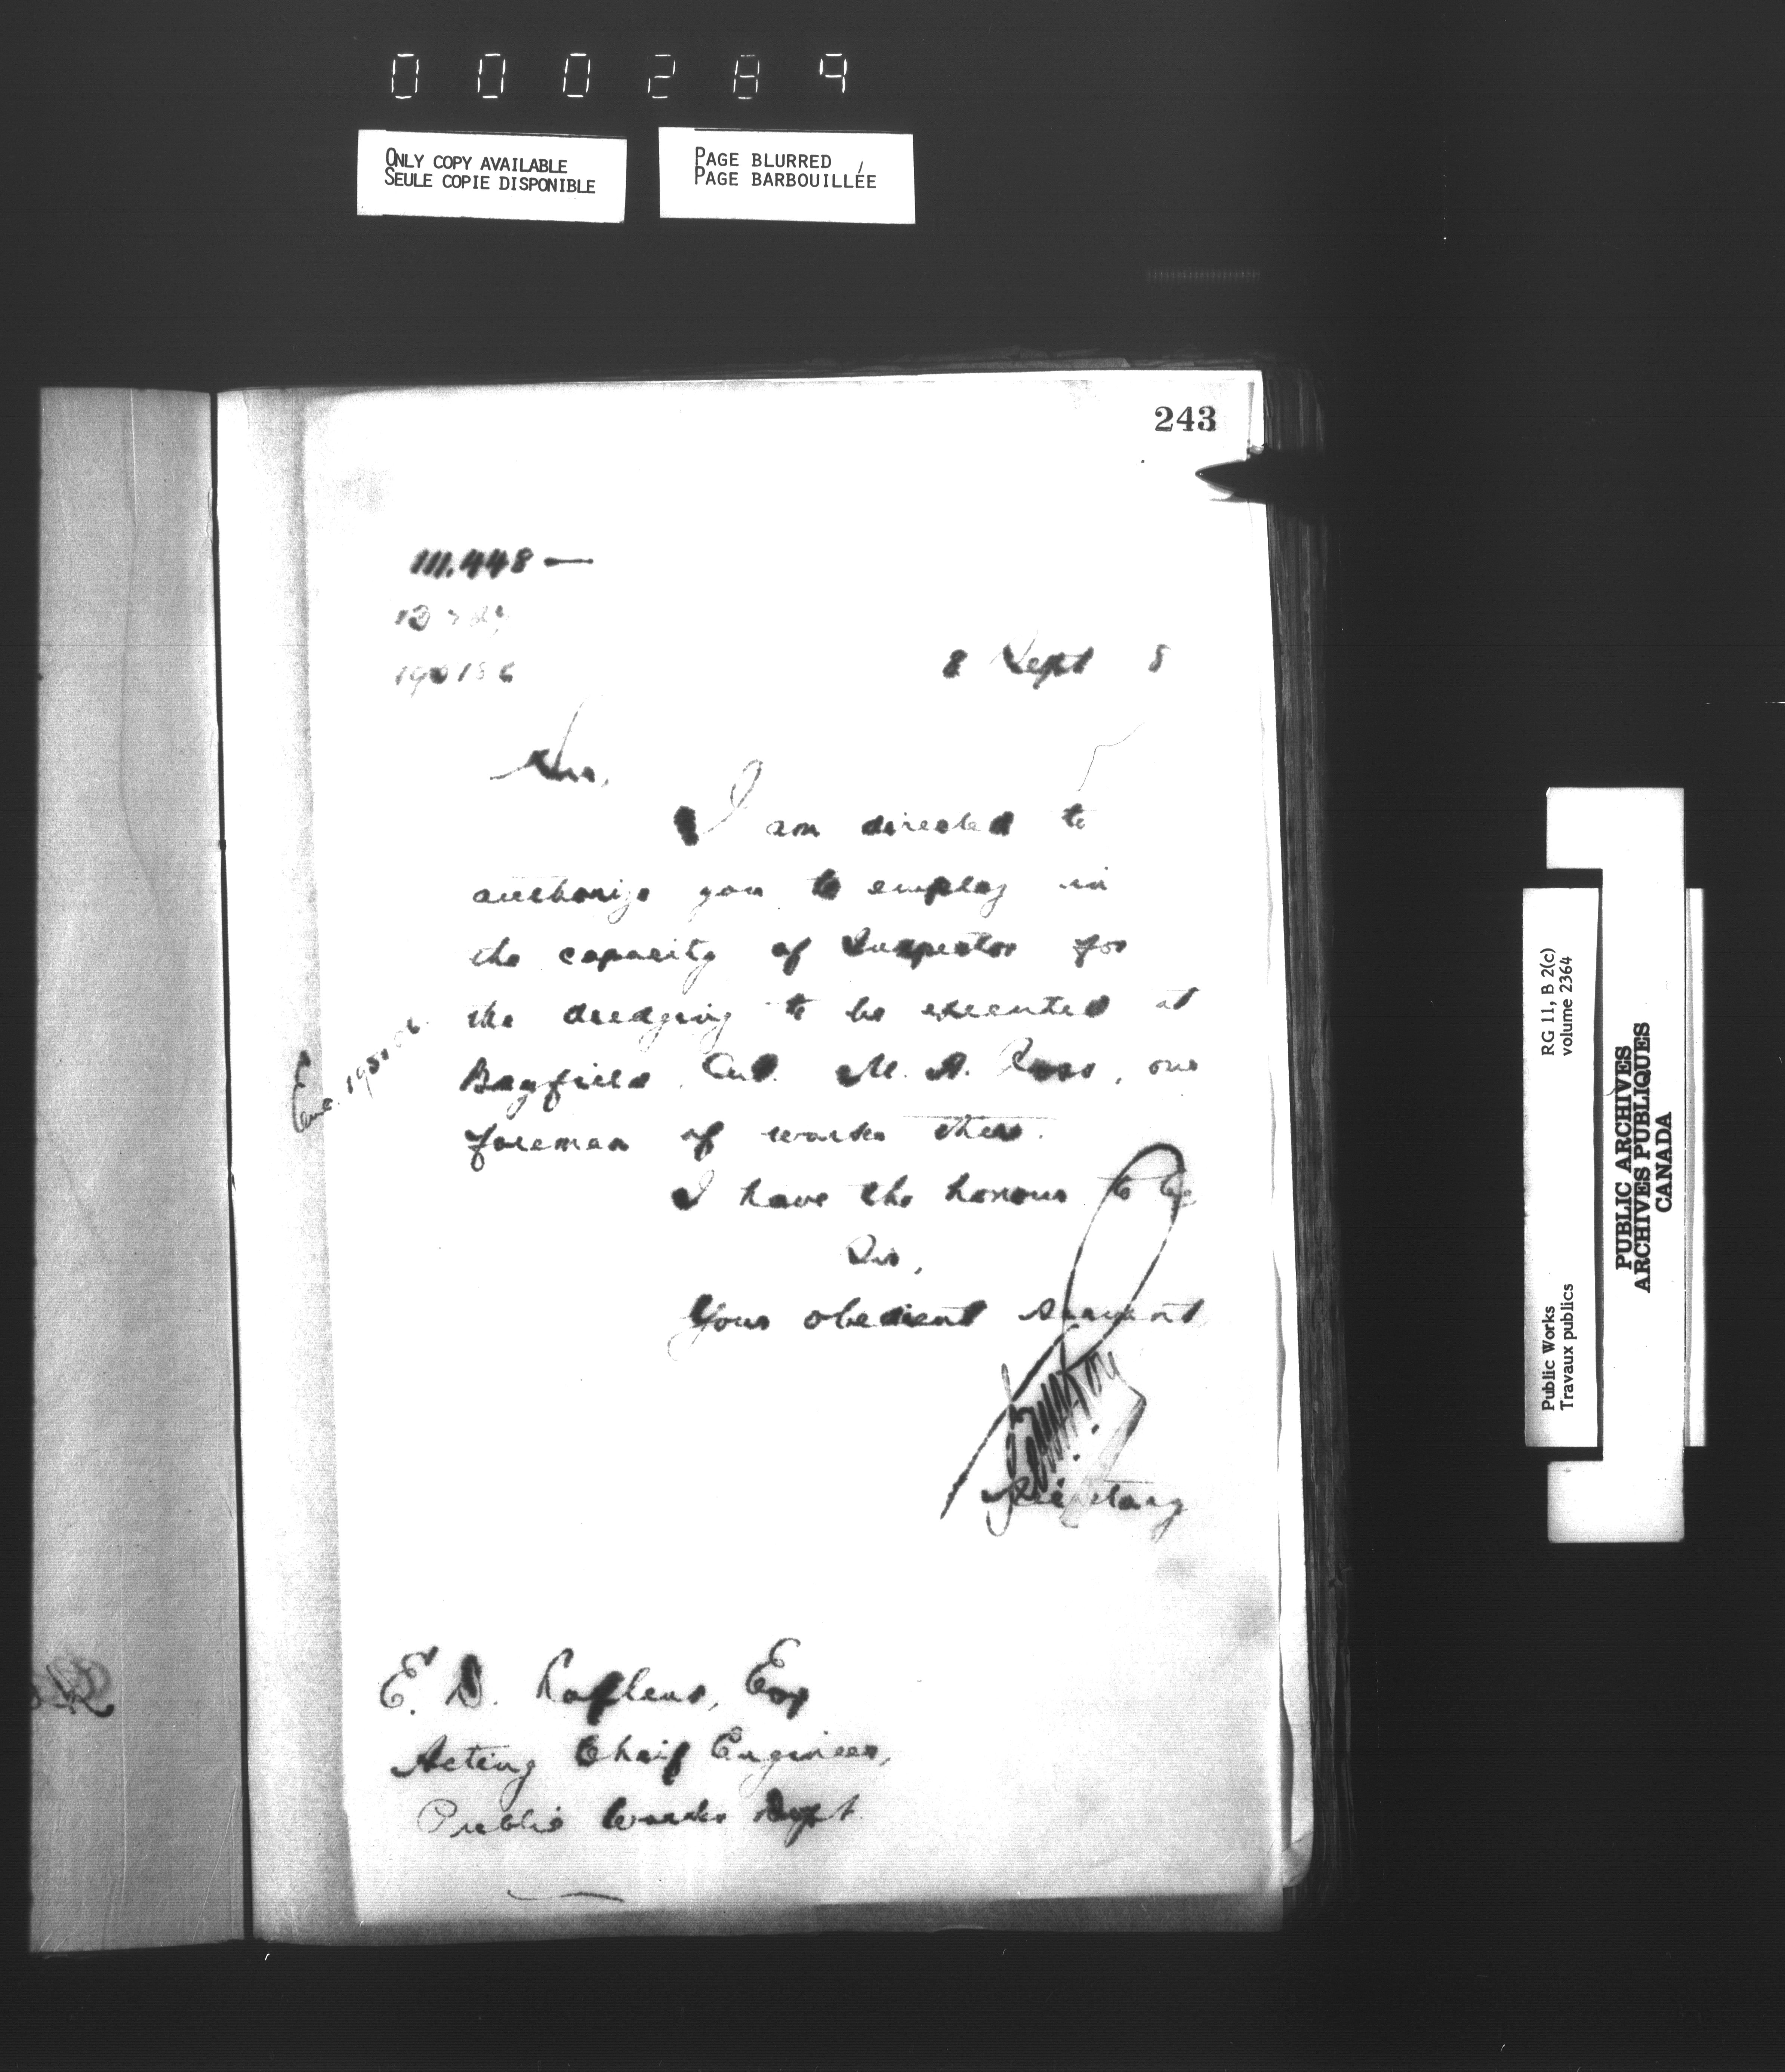 000289
ONLY COPY AVAILABLE
SEULE COPIE DISPONIBLE
PAGE BLURRED
PAGE BARBOUILLÉE
243
111.448 —
8 Sept 8
Sir,
I am directed to
authorize you to employ in
the capacity of Inspector for
the dredging to be executed at
Bayfield Ont. M. A. Ross, our
foreman of works there.
I have the honour to be
Sir,
Your obedient servant,
Secretary
E. D. Lafleur, Esq
Acting Chief Engineer,
Public Works Dept.
RG 11, B 2(c)
volume 2364
Public Works
Travaux publics
PUBLIC ARCHIVES
ARCHIVES PUBLIQUES
CANADA